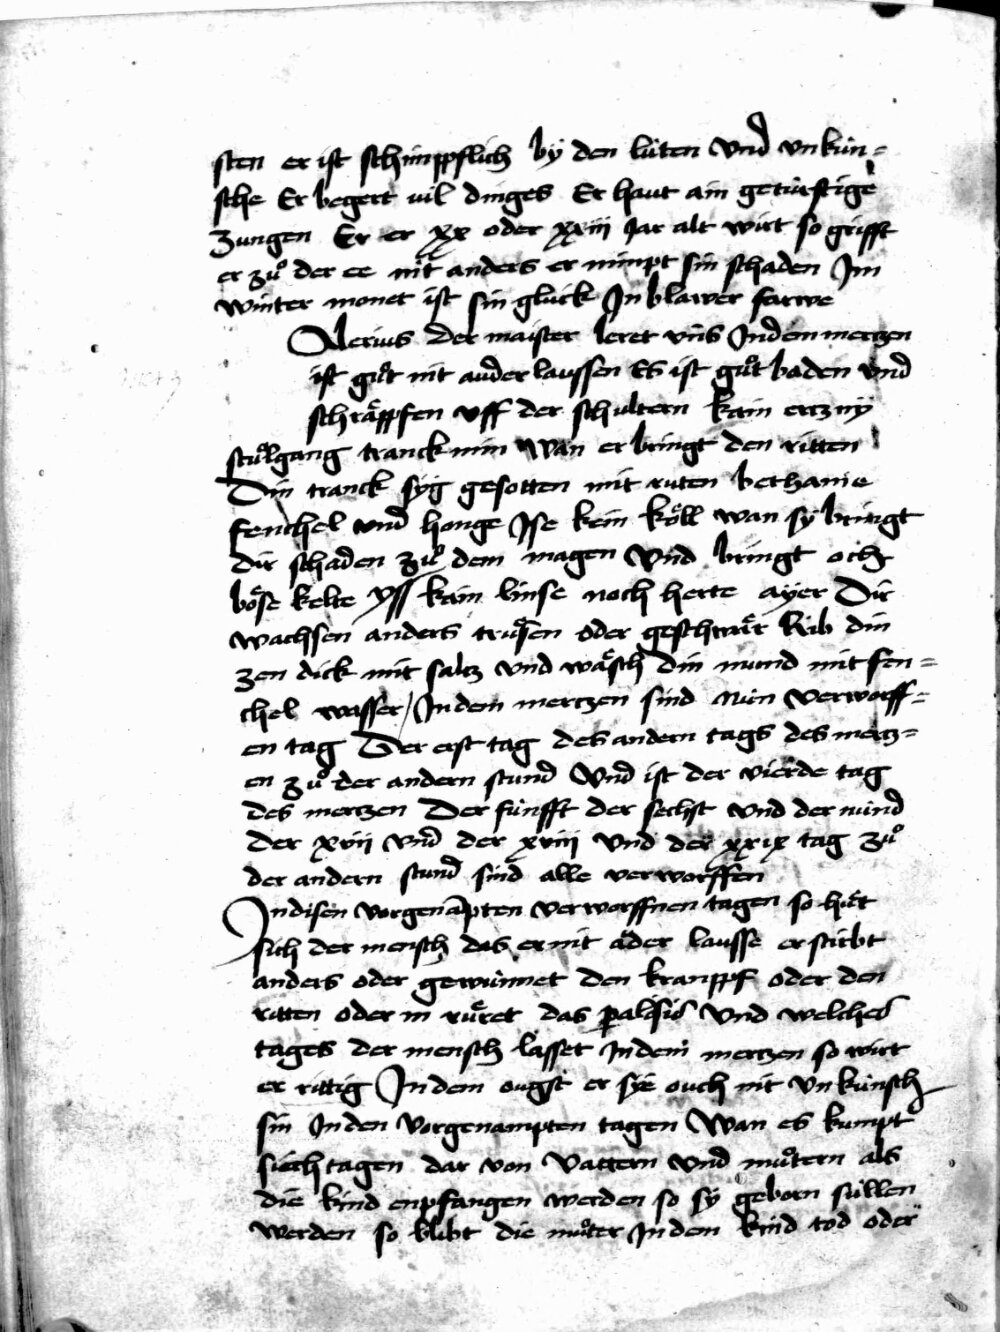 sten er ist schimppflich by den lüten Vnd vnkün=
sche Er begert vil dinges Er haut ain getürstige
zungen Er er xx oder xxiii Jar alt wirt so grifft
er zuͦ der ee nit anders er nimpt sin schaden Jm
winter monet ist sin gluck Jn blawer farwe
Alerius der maister leret vns Jn dem mertzen
ist guͦt nit auder laussen Es ist guͦt baden vnd
schräppfen vff der schultern kain ertzny
stuͦlgang tranck nim Wan er bringt den ritten
Din tranck syg gesotten mit ruten bethanie
fenchel vnd honge Jse kein köll wan sy bringt
dir schaden zuͦ dem magen Vnd bringt och
böse kelte yss kain linse noch herte ayer Dir
wachsen anders truͦsen oder geschwär Rib din
zen dick mit saltz vnd wäsch din mund mit fen=
chel wasser / Jn dem mertzen sind nün verworff=
en tag Der erst tag des andern tags des mertz=
en zuͦ der andern stund Vnd ist der vierde tag
des mertzen Der fünfft der sechst vnd der nünd
der xvii vnd der xviii vnd der xxix tag zuͦ
der andern stund sind alle verworffen
Jn disen vorgenapten verworffnen tagen so huͤt
sich der mensch das er nit ader lausse er stirbt
anders oder gewinnet den krampf oder den
ritten oder in ruͤret das palisis Vnd welches
tages der mensch lasset Jn dem mertzen so wirt
er rittig Jn dem ougst er sye ouch nit vnkünsch
sin Jn den vorgenampten tagen Wan es kumpt
siechtagen dar von vattern vnd muͦtern als
die kind enpfangen werden so sy geborn süllen
werden so blibt die muͦter Jn dem kind tod oder